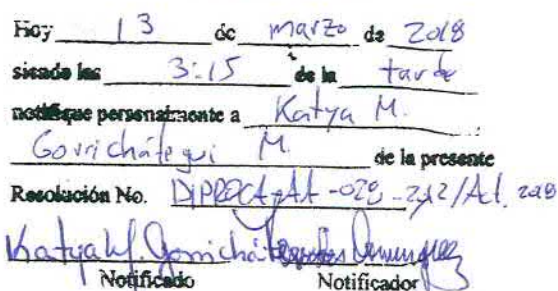 Hoy 13 de marzo de 2018
siendo las 3:15 de la tarde
notifique personalmente a Katya M.
Gorrichátegui M. de la presente
Resolución No. DIPROCA-AA-028-212/Act. 2018
Katya M. Gorrichá Domínguez
Notificado Notificador